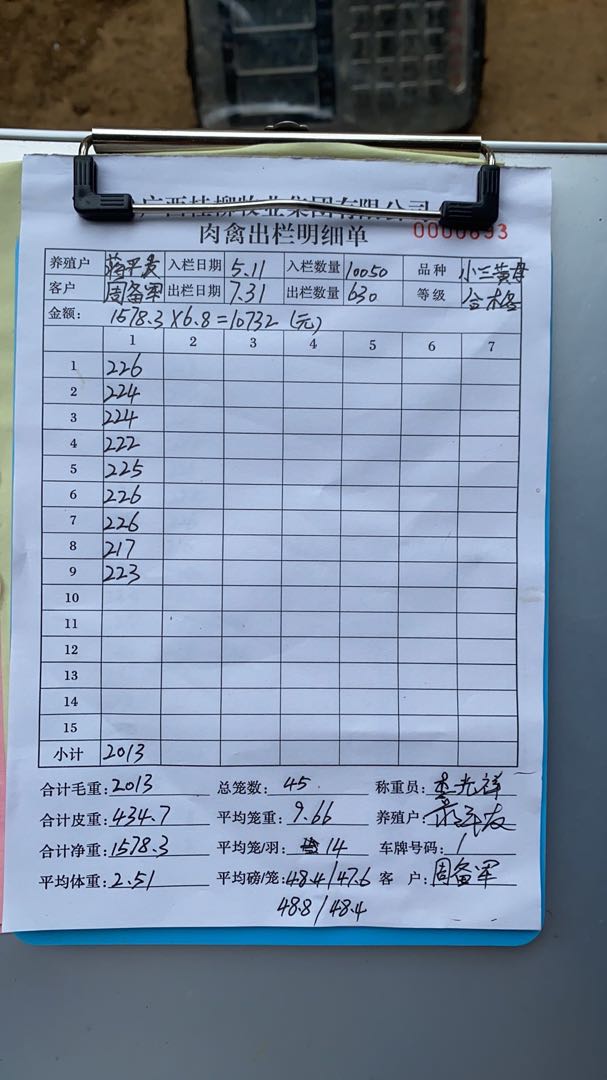 广西桂柳牧业集团有限公司
肉禽出栏明细单 0000693
养殖户 蒋平发 入栏日期 5.11 入栏数量 10050 品种 小三黄母
客户 周备军 出栏日期 7.31 出栏数量 630 等级 合格
金额: 1578.3×6.8=10732(元)
1 2 3 4 5 6 7
1 226
2 224
3 224
4 222
5 225
6 226
7 226
8 217
9 223
10
11
12
13
14
15
小计 2013
合计毛重: 2013 总笼数: 45 称重员: 李光祥
合计皮重: 434.7 平均笼重: 9.66 养殖户:
合计净重: 1578.3 平均笼/羽: 14 车牌号码: 1
平均体重: 2.51 平均磅/笼: 48.4/47.6 客 户: 周备军
48.8/48.4